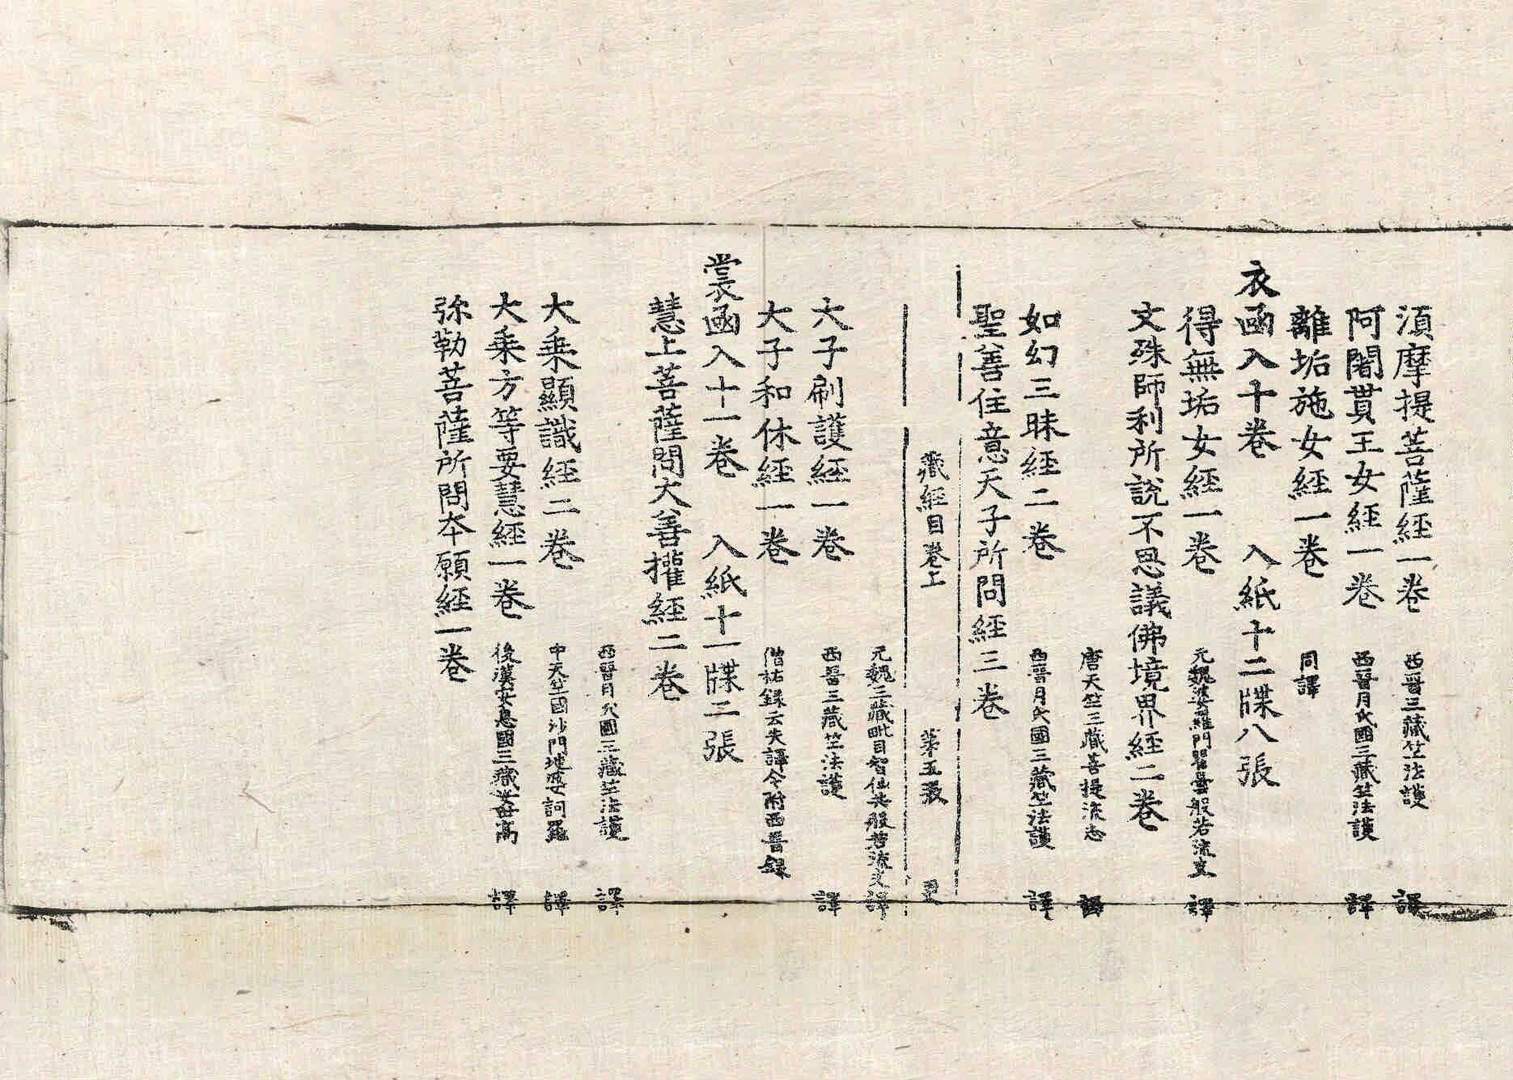 須摩提菩薩經一卷 西晉三藏竺法護 譯
阿闍貰王女經一卷 西晉月氏國三藏竺法護 譯
離垢施女經一卷 同譯
衣函入十卷 入紙十二牒八張
得無垢女經一卷 元魏婆羅門瞿曇般若流支 譯
文殊師利所說不思議佛境界經二卷
唐天竺三藏菩提流志 譯
如幻三昧經二卷 西晉月氏國三藏竺法護 譯
聖善住意天子所問經三卷
藏經目卷上 第五張
元魏三藏毗目智仙共般若流支譯
太子刷護經一卷 西晉三藏竺法護 譯
太子和休經一卷 僧祐錄云失譯今附西晉錄
裳函入十一卷 入紙十一牒二張
慧上菩薩問大善權經二卷
西晉月氏國三藏竺法護 譯
大乘顯識經二卷 中天竺國沙門地婆訶羅 譯
大乘方等要慧經一卷 後漢安息國三藏安世高 譯
弥勒菩薩所問本願經一卷